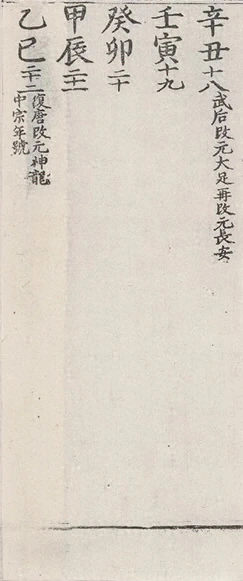 辛丑十八武后改元大足再改元長安
壬寅十九
癸卯二十
甲辰二十一
乙巳二十二復唐改元神龍
中宗年號